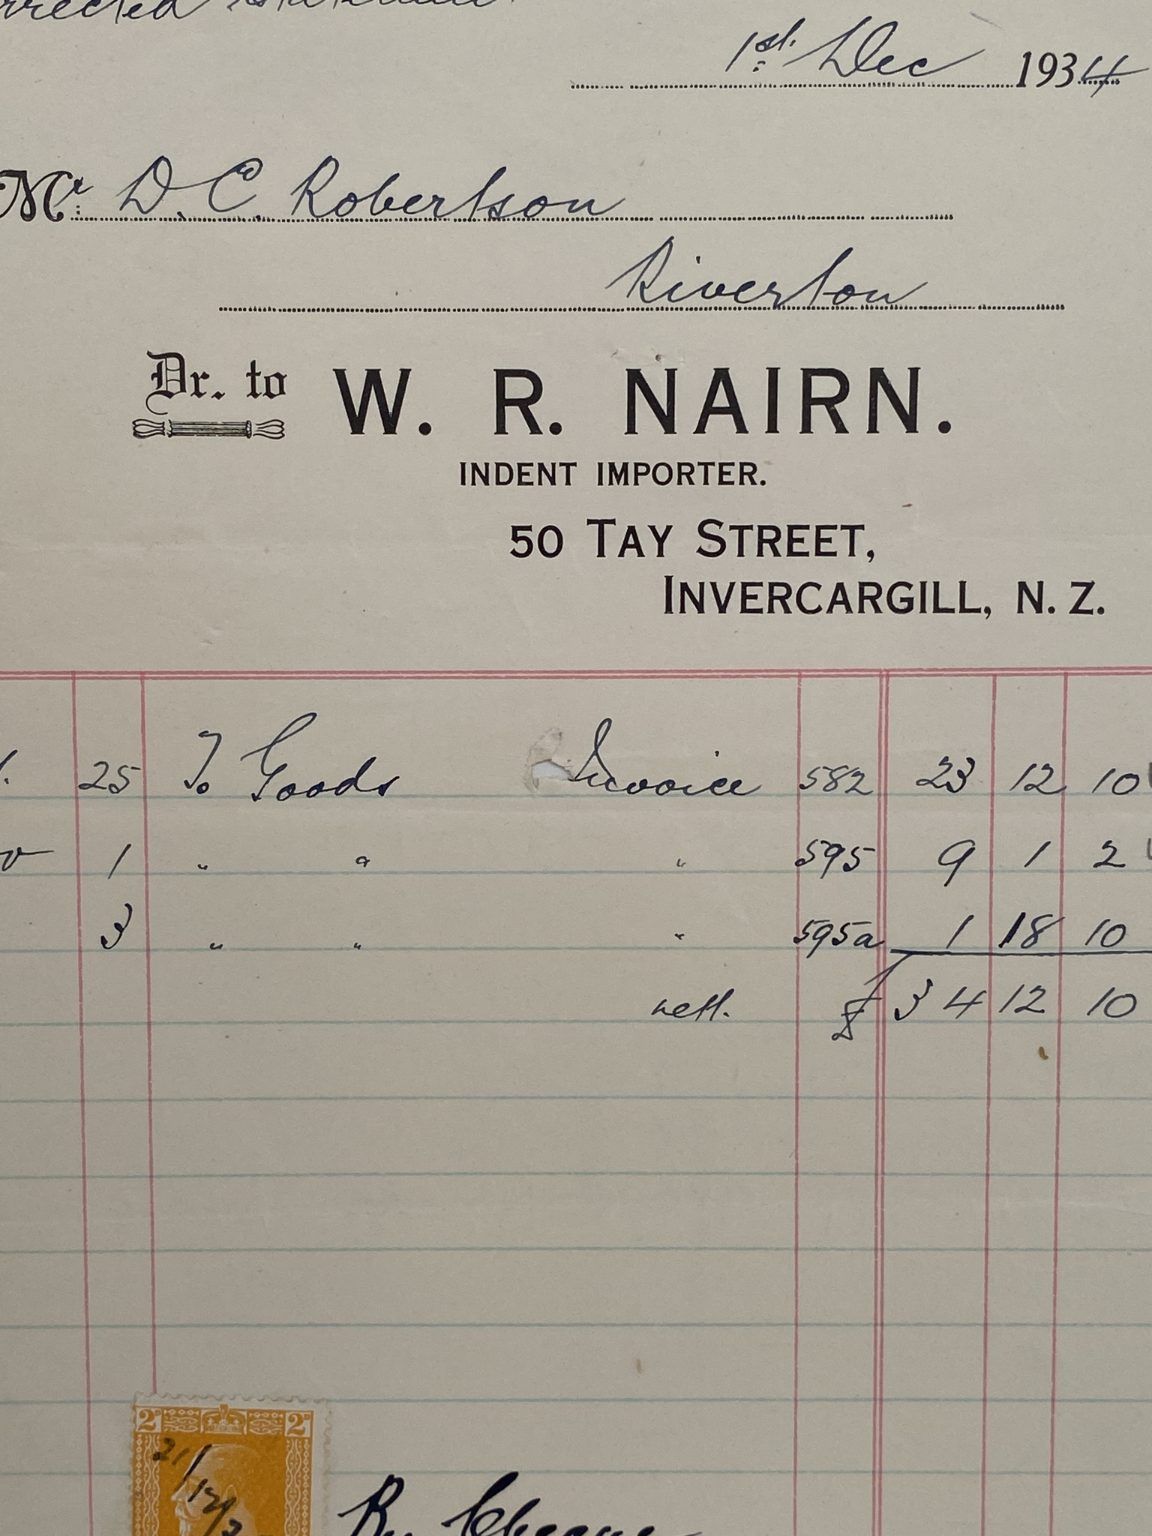 Corrected Statement
1st. Dec 1934
Mr. D. C. Robertson
Riverton
Dr. to W. R. NAIRN.
INDENT IMPORTER.
50 TAY STREET,
INVERCARGILL, N. Z.
25 To Goods Invoice 582 23 12 10
1 " " " 595 9 1 2
3 " " " 595a 1 18 10
nett. £ 34 12 10
2D 2D
21/12/3
By Cheque